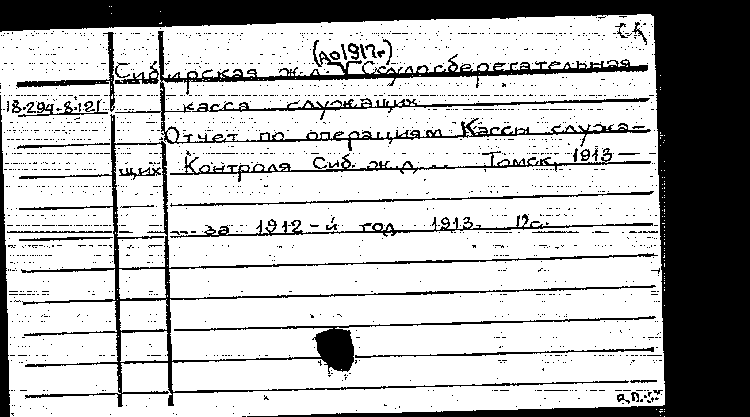 СК
(до 1917г)
Сибирская ж.д. Ссудосберегательная
18.294.8.121 касса служащих
Отчет по операциям Кассы служа-
щих Контроля Сиб. ж.д. .. Томск, 1913 —
... за 1912-й год. 1913. 12с.